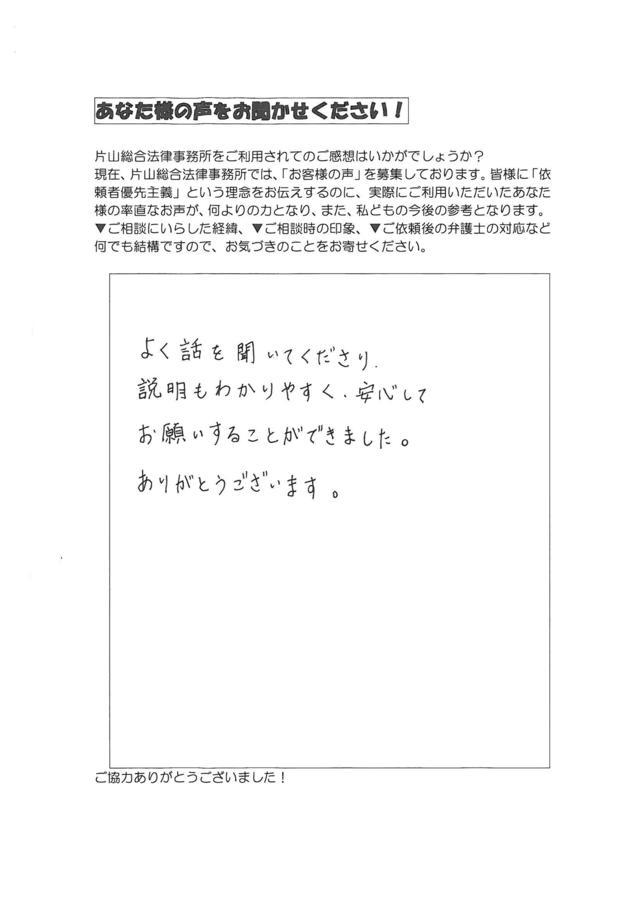 あなた様の声をお聞かせください！
片山総合法律事務所をご利用されてのご感想はいかがでしょうか？
現在、片山総合法律事務所では、「お客様の声」を募集しております。皆様に「依
頼者優先主義」という理念をお伝えするのに、実際にご利用いただいたあなた
様の率直なお声が、何よりの力となり、また、私どもの今後の参考となります。
▼ご相談にいらした経緯、▼ご相談時の印象、▼ご依頼後の弁護士の対応など
何でも結構ですので、お気づきのことをお寄せください。
よく話を聞いてくださり、
説明もわかりやすく、安心して
お願いすることができました。
ありがとうございます。
ご協力ありがとうございました！